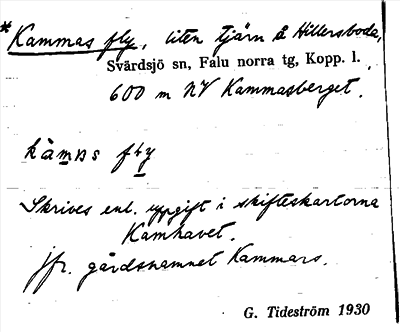 *Kammas fly, liten tjärn å Hillersboda,
Svärdsjö sn, Falu norra tg, Kopp. l.
600 m NV Kammasberget.
kàmas fly
Skrives enl. uppgift i skifteskartorna
Kamhavet.
jfr. gårdsnamnet Kammars.
G. Tideström 1930